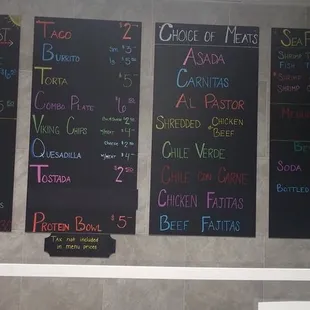 Taco $2
Burrito Sm $3
Lg $5
Torta $5
Combo Plate $6
Viking Chips w/Meat $4
Quesadilla Cheese $2
w/Meat $4
Tostada $2
Protein Bowl $5
Tax not included
in menu prices
Choice of Meats
Asada
Carnitas
Al Pastor
Shredded Chicken
Beef
Chile Verde
Chile con Carne
Chicken Fajitas
Beef Fajitas
Sea F
Shrimp
Fish
Shrimp
Shrimp
Soda
Bottled